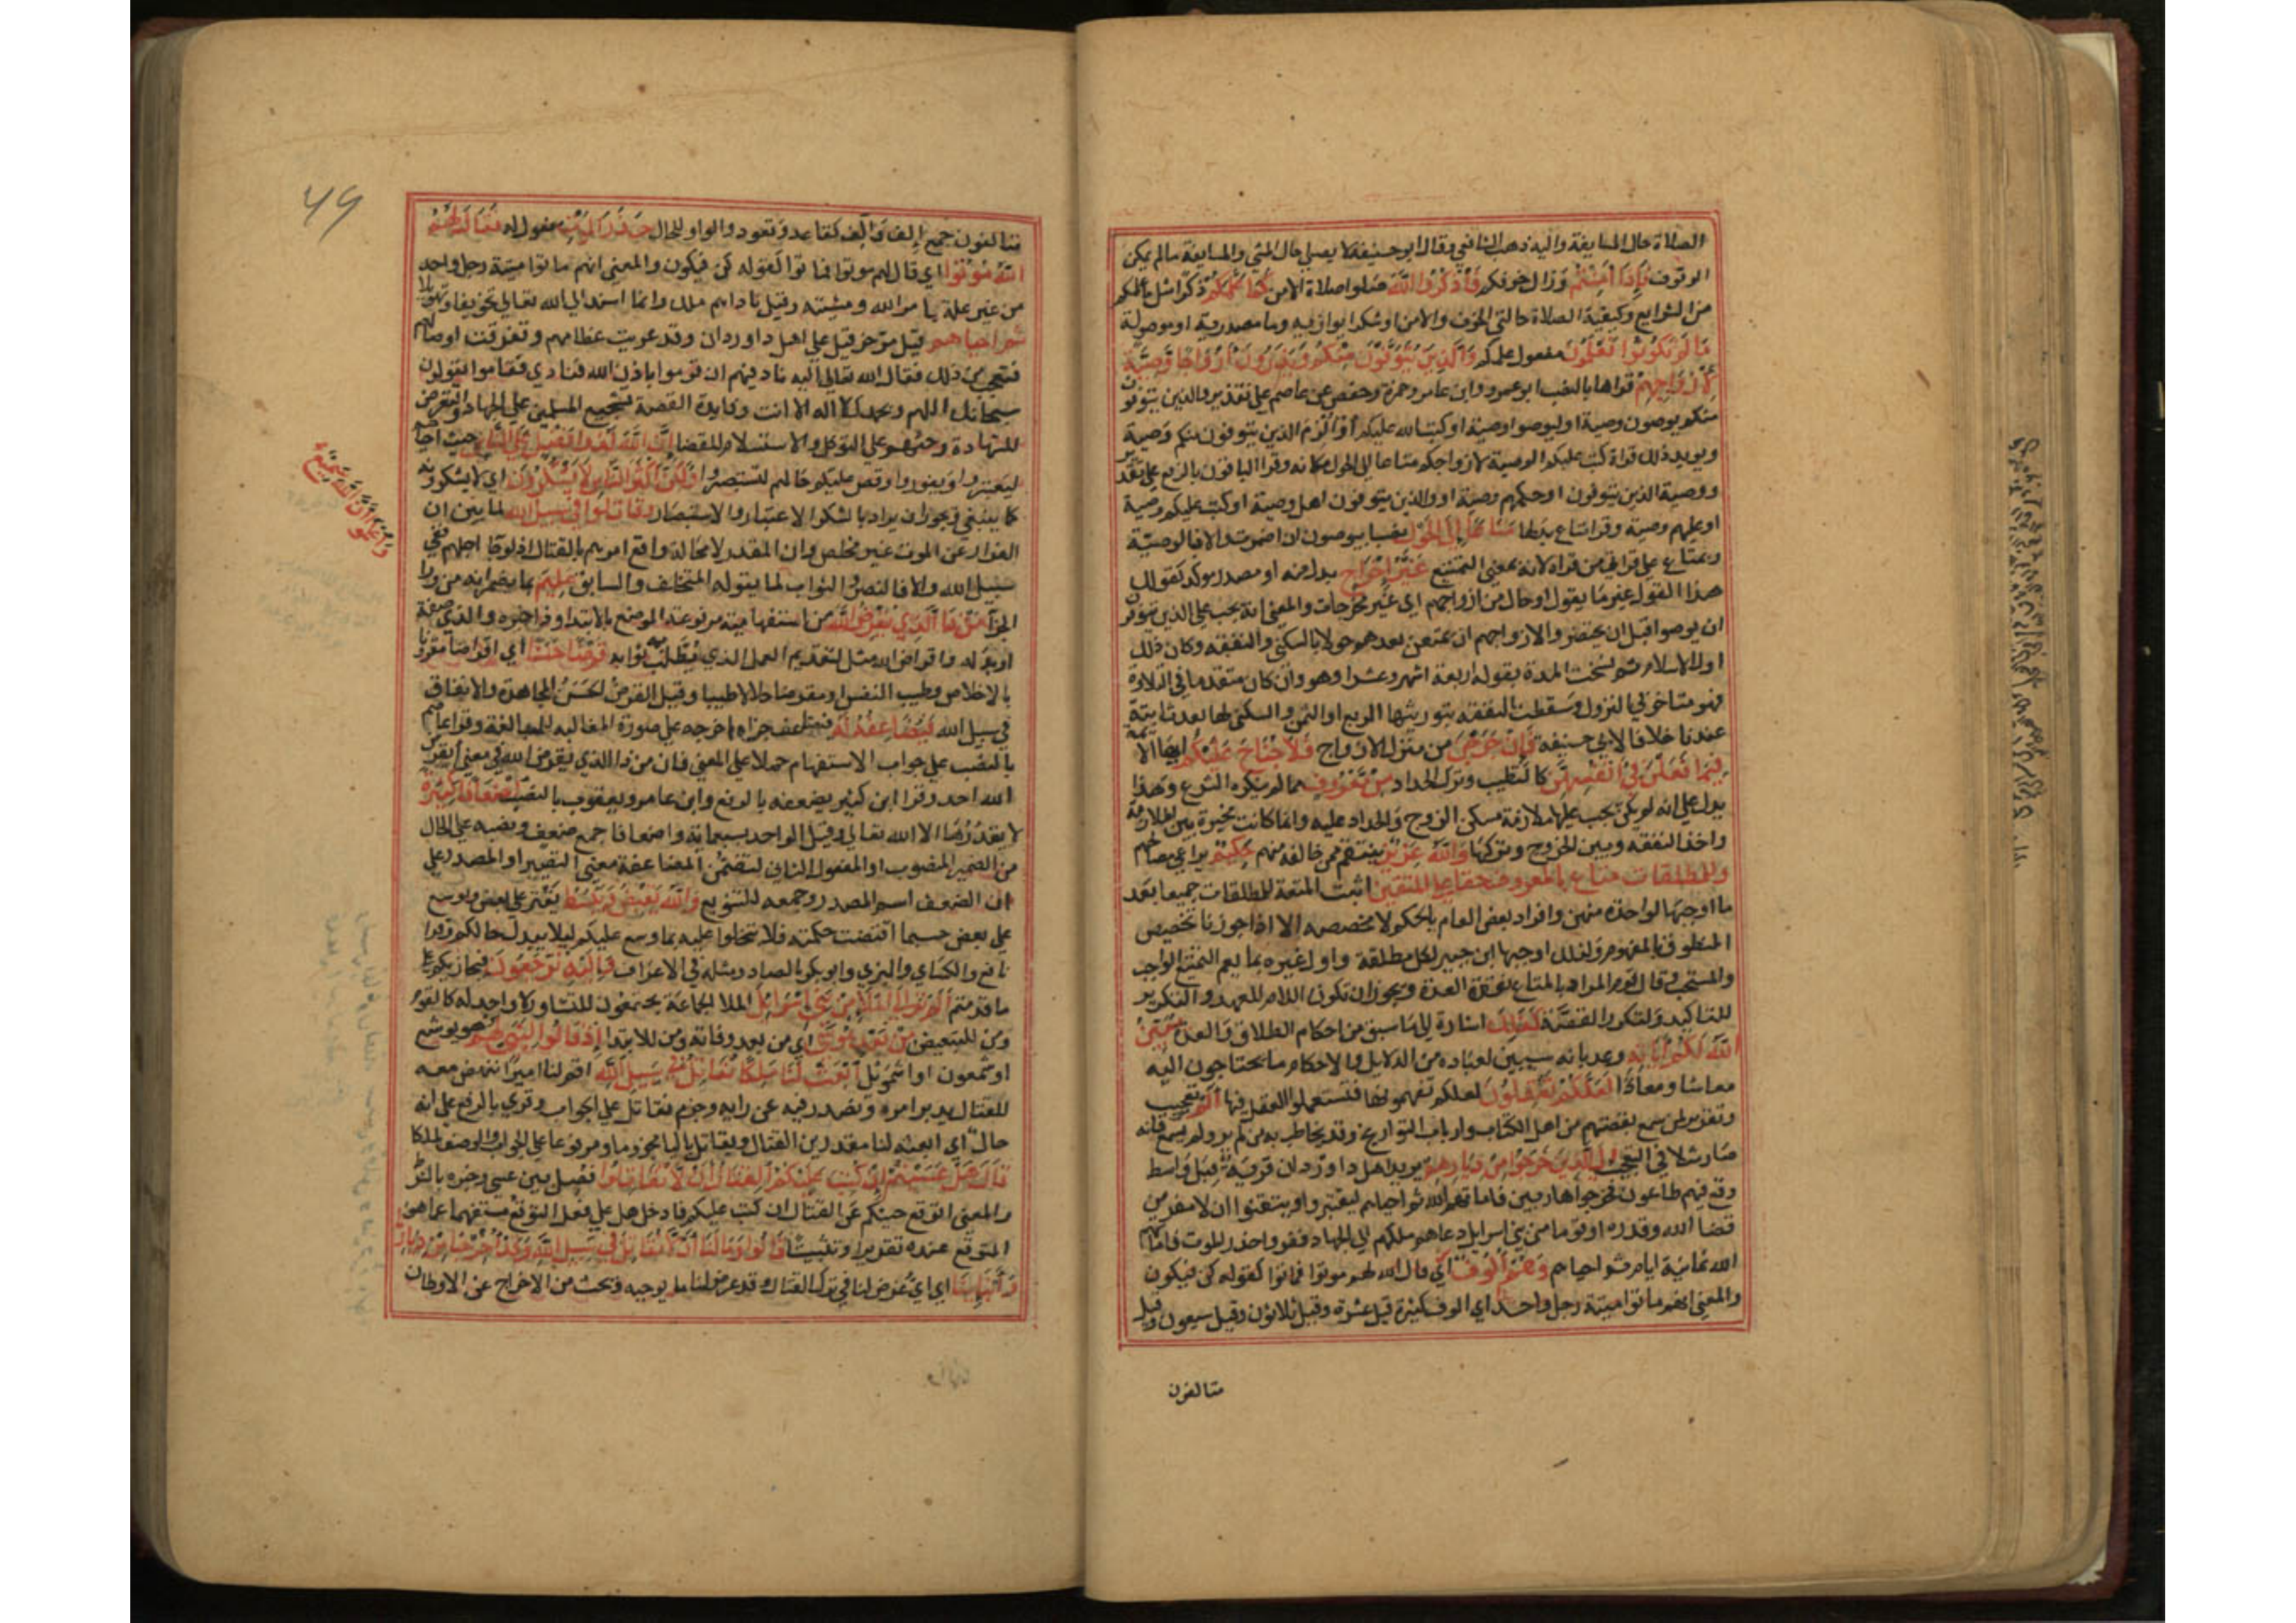 الصلاة حال المسايفة واليه ذهب الشافعي وقال ابو حنيفة لا يصلي حال المشي والمسايفة مالم يمكن
الوقوف فَإِذَا أَمِنْتُمْ وزال خوفكم فَاذْكُرُوا اللَّهَ صلوا صلاة الامن كَمَا عَلَّمَكُمْ ذكرا مثل ما علمكم
من الشرايع وكيفية الصلاة حالتي الخوف والامن او شكرا يوازيه وما مصدرية او موصولة
مَا لَمْ تَكُونُوا تَعْلَمُونَ مفعول علمكم وَالَّذِينَ يُتَوَفَّوْنَ مِنْكُمْ وَيَذَرُونَ أَزْوَاجًا وَصِيَّةً
لِأَزْوَاجِهِمْ قراها بالنصب ابو عمرو وابن عامر وحمزة وحفص عن عاصم على تقدير والذين يتوفون
منكم يوصون وصية او ليوصوا وصية او كتب الله عليكم او الزم الذين يتوفون منكم وصية
ويويد ذلك قراة كتب عليكم الوصية لازواجكم متاعا الى الحول مكانه وقرا الباقون بالرفع على تقدير
ووصية الذين يتوفون او حكمهم وصية او والذين يتوفون اهل وصية او كتب عليكم وصية
او عليهم وصية وقرا متاع بدلها مَتَاعًا إِلَى الْحَوْلِ نصب بيوصون ان اضمرت والا فالوصية
وبمتاع على قراة من قراه لانه بمعنى التمتيع غَيْرَ إِخْرَاجٍ بدل منه او مصدر موكد كقولك
هذا القول غير ما يقول او حال من ازواجهم اي غير مخرجات والمعنى انه يجب على الذين يتوفون
ان يوصوا قبل ان يحتضروا لازواجهم ان يمتعن بعدهم حولا بالسكنى والنفقة وكان ذلك
اول الاسلام ثم نسخت المدة بقوله اربعة اشهر وعشرا وهو وان كان متقدما في التلاوة
فهو متاخر في النزول وسقطت النفقة بتوريثها الربع او الثمن والسكنى لها بعد ثابتة
عندنا خلافا لابي حنيفة فَإِنْ خَرَجْنَ من منزل الازواج فَلَا جُنَاحَ عَلَيْكُمْ ايها الايمة
فِيمَا فَعَلْنَ فِي أَنْفُسِهِنَّ كالتطيب وترك الحداد مِنْ مَعْرُوفٍ مما لم ينكره الشرع وهذا
يدل على انه لم يكن يجب عليها ملازمة مسكن الزوج والحداد عليه وانما كانت مخيرة بين الملازمة
واخذ النفقة وبين الخروج وتركها وَاللَّهُ عَزِيزٌ ينتقم ممن خالفه منهم حَكِيمٌ يراعي مصالحهم
وللمطلقات متاع بالمعروف حقا على المتقين اثبت المتعة للمطلقات جميعا بعد
ما اوجبها لواحدة منهن وافراد بعض العام بالحكم لا يخصصه الا اذا جوزنا تخصيص
المنطوق بالمفهوم ولذلك اوجبها ابن جبير لكل مطلقة واول غيره بما يعم التمتيع الواجب
والمستحب وقال قوم المراد بالمتاع نفقة العدة ويجوز ان تكون اللام للعهد والتكرير
للتاكيد ولتكرر القصة كَذَلِكَ اشارة الى ما سبق من احكام الطلاق والعدة يُبَيِّنُ
اللَّهُ لَكُمْ آيَاتِهِ وعد بانه سيبين لعباده من الدلايل والاحكام ما يحتاجون اليه
معاشا ومعادا لَعَلَّكُمْ تَعْقِلُونَ لعلكم تفهمونها فتستعملوا العقل فيها أَلَمْ تَرَ تعجيب
وتقرير لمن سمع بقصتهم من اهل الكتاب وارباب التواريخ وقد يخاطب به من لم ير ولم يسمع فانه
صار مثلا في التعجيب إِلَى الَّذِينَ خَرَجُوا مِنْ دِيَارِهِمْ يريد اهل داوردان قرية قبل واسط
وقع فيهم طاعون فخرجوا هاربين فاماتهم الله ثم احياهم ليعتبروا ويتيقنوا ان لا مفر من
قضا الله وقدره او قوما من بني اسرايل دعاهم ملكهم الى الجهاد ففروا حذر الموت فاماتهم
الله ثمانية ايام ثم احياهم وَهُمْ أُلُوفٌ اي قال الله لهم موتوا فماتوا كقوله كن فيكون
والمعنى انهم ماتوا ميتة رجل واحد اي الوف كثيرة قيل عشرة وقيل ثلاثون وقيل سبعون وقيل
متالفون
متالفون جمع إلف وآلف كقاعد وقعود والواو للحال حَذَرَ الْمَوْتِ مفعول له فَقَالَ لَهُمُ
اللَّهُ مُوتُوا اي قال لهم موتوا فماتوا كقوله كن فيكون والمعنى انهم ماتوا ميتة رجل واحد
من غير علة بامر الله ومشيته وقيل ناداهم ملك وانما اسند الى الله تعالى تخويفا وتهويلا
ثُمَّ أَحْيَاهُمْ قيل مر حزقيل على اهل داوردان وقد عريت عظامهم وتفرقت اوصالهم
فتعجب من ذلك فقال الله تعالى اليه ناد فيهم ان قوموا باذن الله فنادى فقاموا يقولون
سبحانك اللهم وبحمدك لا اله الا انت وفايدة القصة تشجيع المسلمين على الجهاد والتعرض
للشهادة وحثهم على التوكل والاستسلام للقضا إِنَّ اللَّهَ لَذُو فَضْلٍ عَلَى النَّاسِ حيث احياهم
ليعتبروا ويفوزوا وقص عليكم حالهم لتستبصروا وَلَكِنَّ أَكْثَرَ النَّاسِ لَا يَشْكُرُونَ اي لا يشكرونه
كما ينبغي ويجوز ان يراد بالشكر الاعتبار والاستبصار وَقَاتِلُوا فِي سَبِيلِ اللَّهِ لما بين ان
الفرار عن الموت غير مخلص وان المقدر لا محالة واقع امرهم بالقتال اذ لو جا اجلهم ففي
سبيل الله والا فالنصر والثواب لما يقوله المتخلف والسابق عَلِيمٌ بما يضمرانه من ورا
الجزا مَنْ ذَا الَّذِي يُقْرِضُ اللَّهَ من استفهامية مرفوعة الموضع بالابتدا وذا خبره والذي صفة
او بدله واقراض الله مثل لتقديم العمل الذي يطلب ثوابه قَرْضًا حَسَنًا اي اقراضا مقرونا
بالاخلاص وطيب النفس او مقرضا حلالا طيبا وقيل القرض الحسن المجاهدة والانفاق
في سبيل الله فَيُضَاعِفَهُ لَهُ فيضاعف جزاه اخرجه على صورة المغالبة للمبالغة وقرا عاصم
بالنصب على جواب الاستفهام حملا على المعنى فان من ذا الذي يقرض الله في معنى أيقرض
الله احد وقرا ابن كثير يضعفه بالرفع وابن عامر ويعقوب بالنصب أَضْعَافًا كَثِيرَةً
لا يقدرها الا الله تعالى وقيل الواحد بسبعماية واضعافا جمع ضعف ونصبه على الحال
من الضمير المنصوب او المفعول الثاني لتضمن المضاعفة معنى التصيير او المصدر على
ان الضعف اسم المصدر وجمعه للتنويع وَاللَّهُ يَقْبِضُ وَيَبْسُطُ يقتر على بعض ويوسع
على بعض حسبما اقتضت حكمته فلا تبخلوا عليه بما وسع عليكم ليلا يبدل حالكم وقرا
نافع والكساي والبزي وابو بكر بالصاد ومثله في الاعراف وَإِلَيْهِ تُرْجَعُونَ فيجازيكم على
ما قدمتم أَلَمْ تَرَ إِلَى الْمَلَإِ مِنْ بَنِي إِسْرَائِيلَ الملا الجماعة يجتمعون للتشاور لا واحد له كالقوم
ومن للتبعيض مِنْ بَعْدِ مُوسَى اي من بعد وفاته ومن للابتدا إِذْ قَالُوا لِنَبِيٍّ لَهُمُ هو يوشع
او شمعون او اشمويل ابْعَثْ لَنَا مَلِكًا نُقَاتِلْ فِي سَبِيلِ اللَّهِ اقم لنا اميرا ننهض معه
للقتال يدبر امره ونصدر فيه عن رايه وجزم نقاتل على الجواب وقري بالرفع على انه
حال اي ابعثه لنا مقدرين القتال ويقاتل باليا مجزوما ومرفوعا على الجواب والوصف لملكا
قَالَ هَلْ عَسَيْتُمْ إِنْ كُتِبَ عَلَيْكُمُ الْقِتَالُ أَنْ لَا تُقَاتِلُوا فصل بين عسى وخبره بالشرط
والمعنى اتوقع جبنكم عن القتال ان كتب عليكم فادخل هل على فعل التوقع مستفهما عما هو
المتوقع عنده تقريرا وتثبيتا قَالُوا وَمَا لَنَا أَلَّا نُقَاتِلَ فِي سَبِيلِ اللَّهِ وَقَدْ أُخْرِجْنَا مِنْ دِيَارِنَا
وَأَبْنَائِنَا اي اي غرض لنا في ترك القتال وقد عرض لنا ما يوجبه ويحث من الاخراج عن الاوطان
وَاعْلَمُوا أَنَّ اللَّهَ سَمِيعٌ